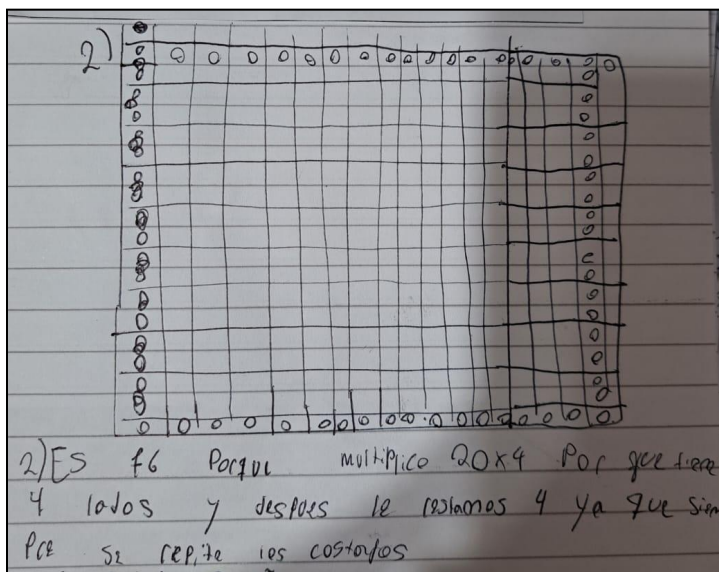 2)
2) ES 76 Porque multiplico 20x4 Por que tiene
4 lados y despues le restamos 4 ya que siem
Pre se repite los costados